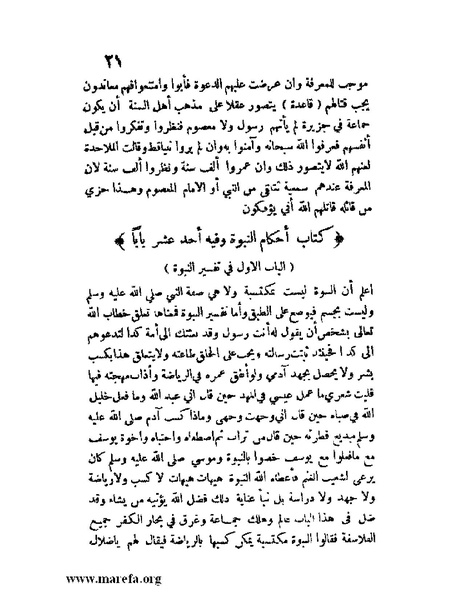 ٢١
موجب للمعرفة وان عرضت عليهم الدعوة فأبوا وامتنعوا فهم معاندون
يجب قتالهم ( قاعدة ) يتصور عقلا على مذهب أهل السنة أن يكون
جماعة في جزيرة لم يأتهم رسول ولا معصوم فنظروا وتفكروا من قبل
أنفسهم فعرفوا الله سبحانه وآمنوا به وان لم يروا نبيا قط وقالت الملاحدة
لعنهم الله لا يتصور ذلك وان عمروا ألف سنة ونظروا ألف سنة لان
المعرفة عندهم سمعية تتلقى من النبي أو الامام المعصوم وهذا خزي
من قائله قاتلهم الله أنى يؤفكون
﴿ كتاب أحكام النبوة وفيه أحد عشر بابا ﴾
( الباب الاول في تفسير النبوة )
اعلم أن النبوة ليست بمكتسبة ولا هي صفة النبي صلى الله عليه وسلم
وليست بجسم فيوضع على الطبق وأما تفسير النبوة فمعناها تعلق خطاب الله
تعالى بشخص أن يقول له أنت رسول وقد بعثتك الى أمة كذا لتدعوهم
الى كذا فحينئذ ثبتت رسالته ويجب على الخلق طاعته ولا يتعلق هذا بكسب
بشر ولا يحصل بجهد آدمي ولو أنفق عمره في الرياضة وأذاب مهجته فيها
فليت شعري ما عمل عيسى في المهد حين قال اني عبد الله وما فعل خليل
الله في صباه حين قال اني وجهت وجهي وماذا كسب آدم صلى الله عليه
وسلم مبديع فطرته حين قال من تراب ثم اصطفاه واجتباه واخوة يوسف
مع ما فعلوا مع يوسف خصوا بالنبوة وموسى صلى الله عليه وسلم كان
يرعى لشعيب الغنم فأعطاه الله النبوة هيهات هيهات لا كسب ولا رياضة
ولا جهد ولا دراسة بل نبأ عناية ذلك فضل الله يؤتيه من يشاء وقد
ضل في هذا الباب عالم وهلك جماعة وغرق في بحار الكفر جميع
الفلاسفة فقالوا النبوة مكتسبة يمكن كسبها بالرياضة فيقال لهم ياضلال
www.marefa.org